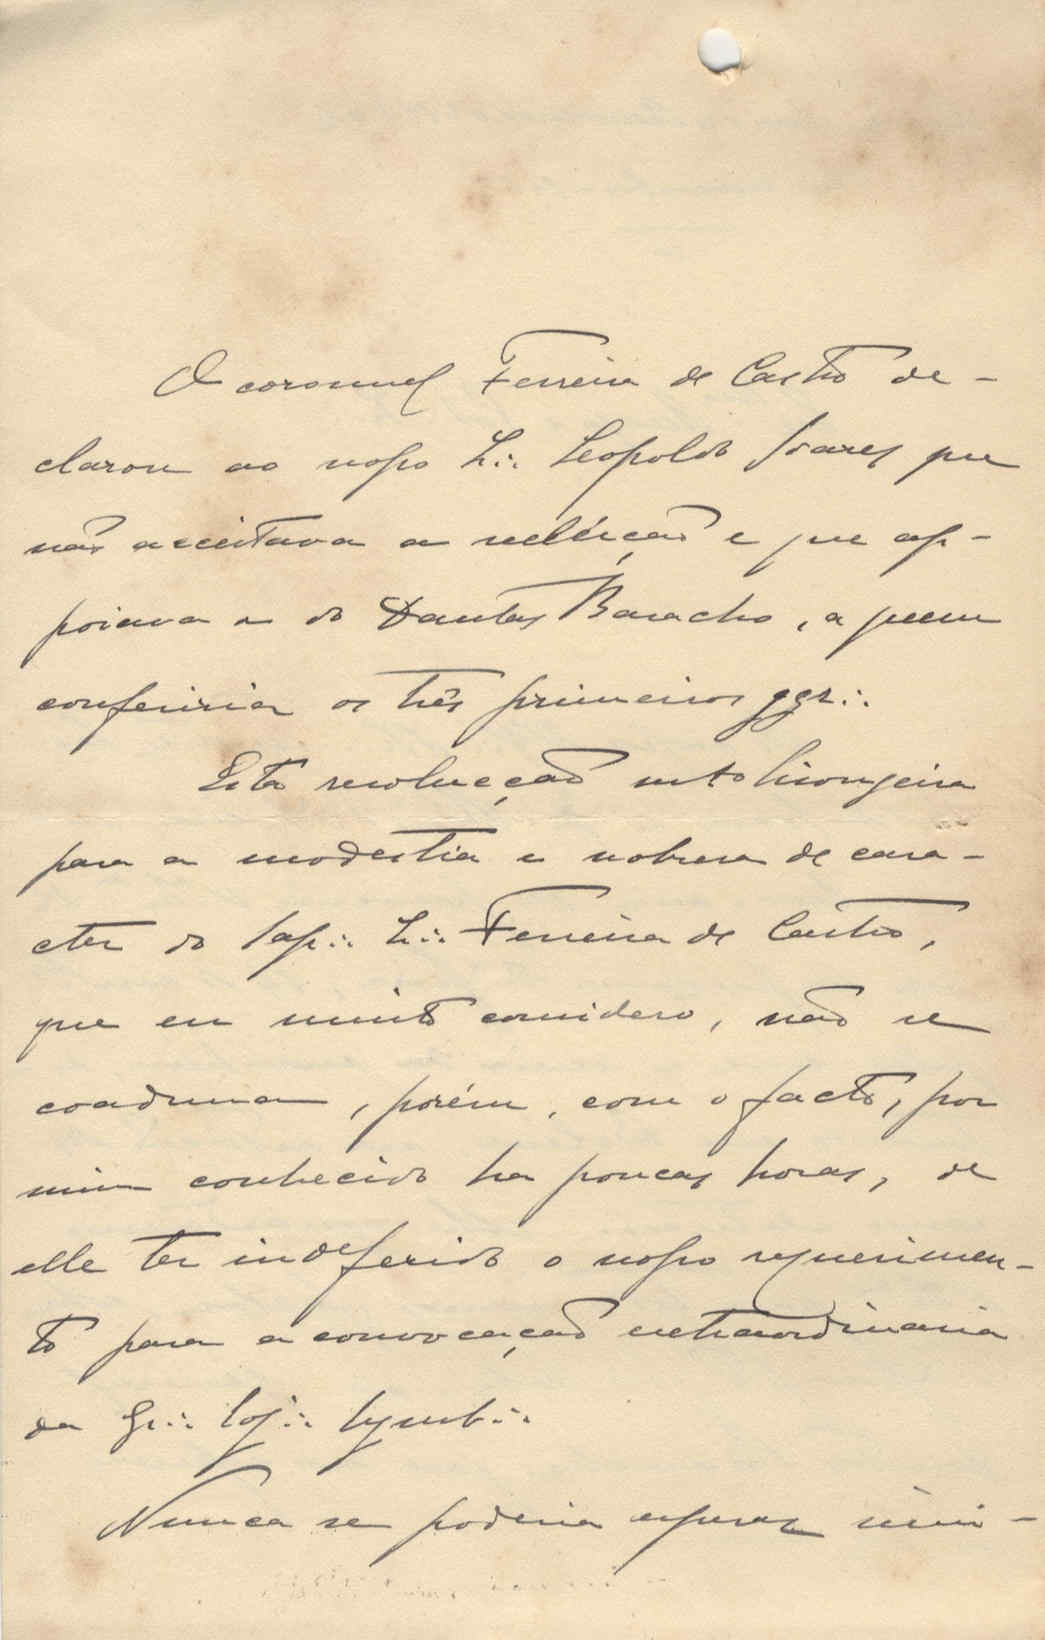 O coronel Ferreira de Castro de-
clarou ao nosso I∴ Leopoldo Soares que
não acceitava a reeleição e que ap-
poiava a do Dantas Baracho, a quem
conferiria os três primeiros ggr∴
Esta resolucção mto lisongeira
para a modestia e nobresa de cara-
cter do Sap∴ I∴ Ferreira de Castro,
que eu muito considero, não se
coaduna, porém, com o facto, por
mim conhecido ha poucas horas, de
elle ter indeferido o nosso requerimen-
to para a convocação extraordinaria
da Gr∴ Loj∴ Symb∴
Nunca se poderia esperar